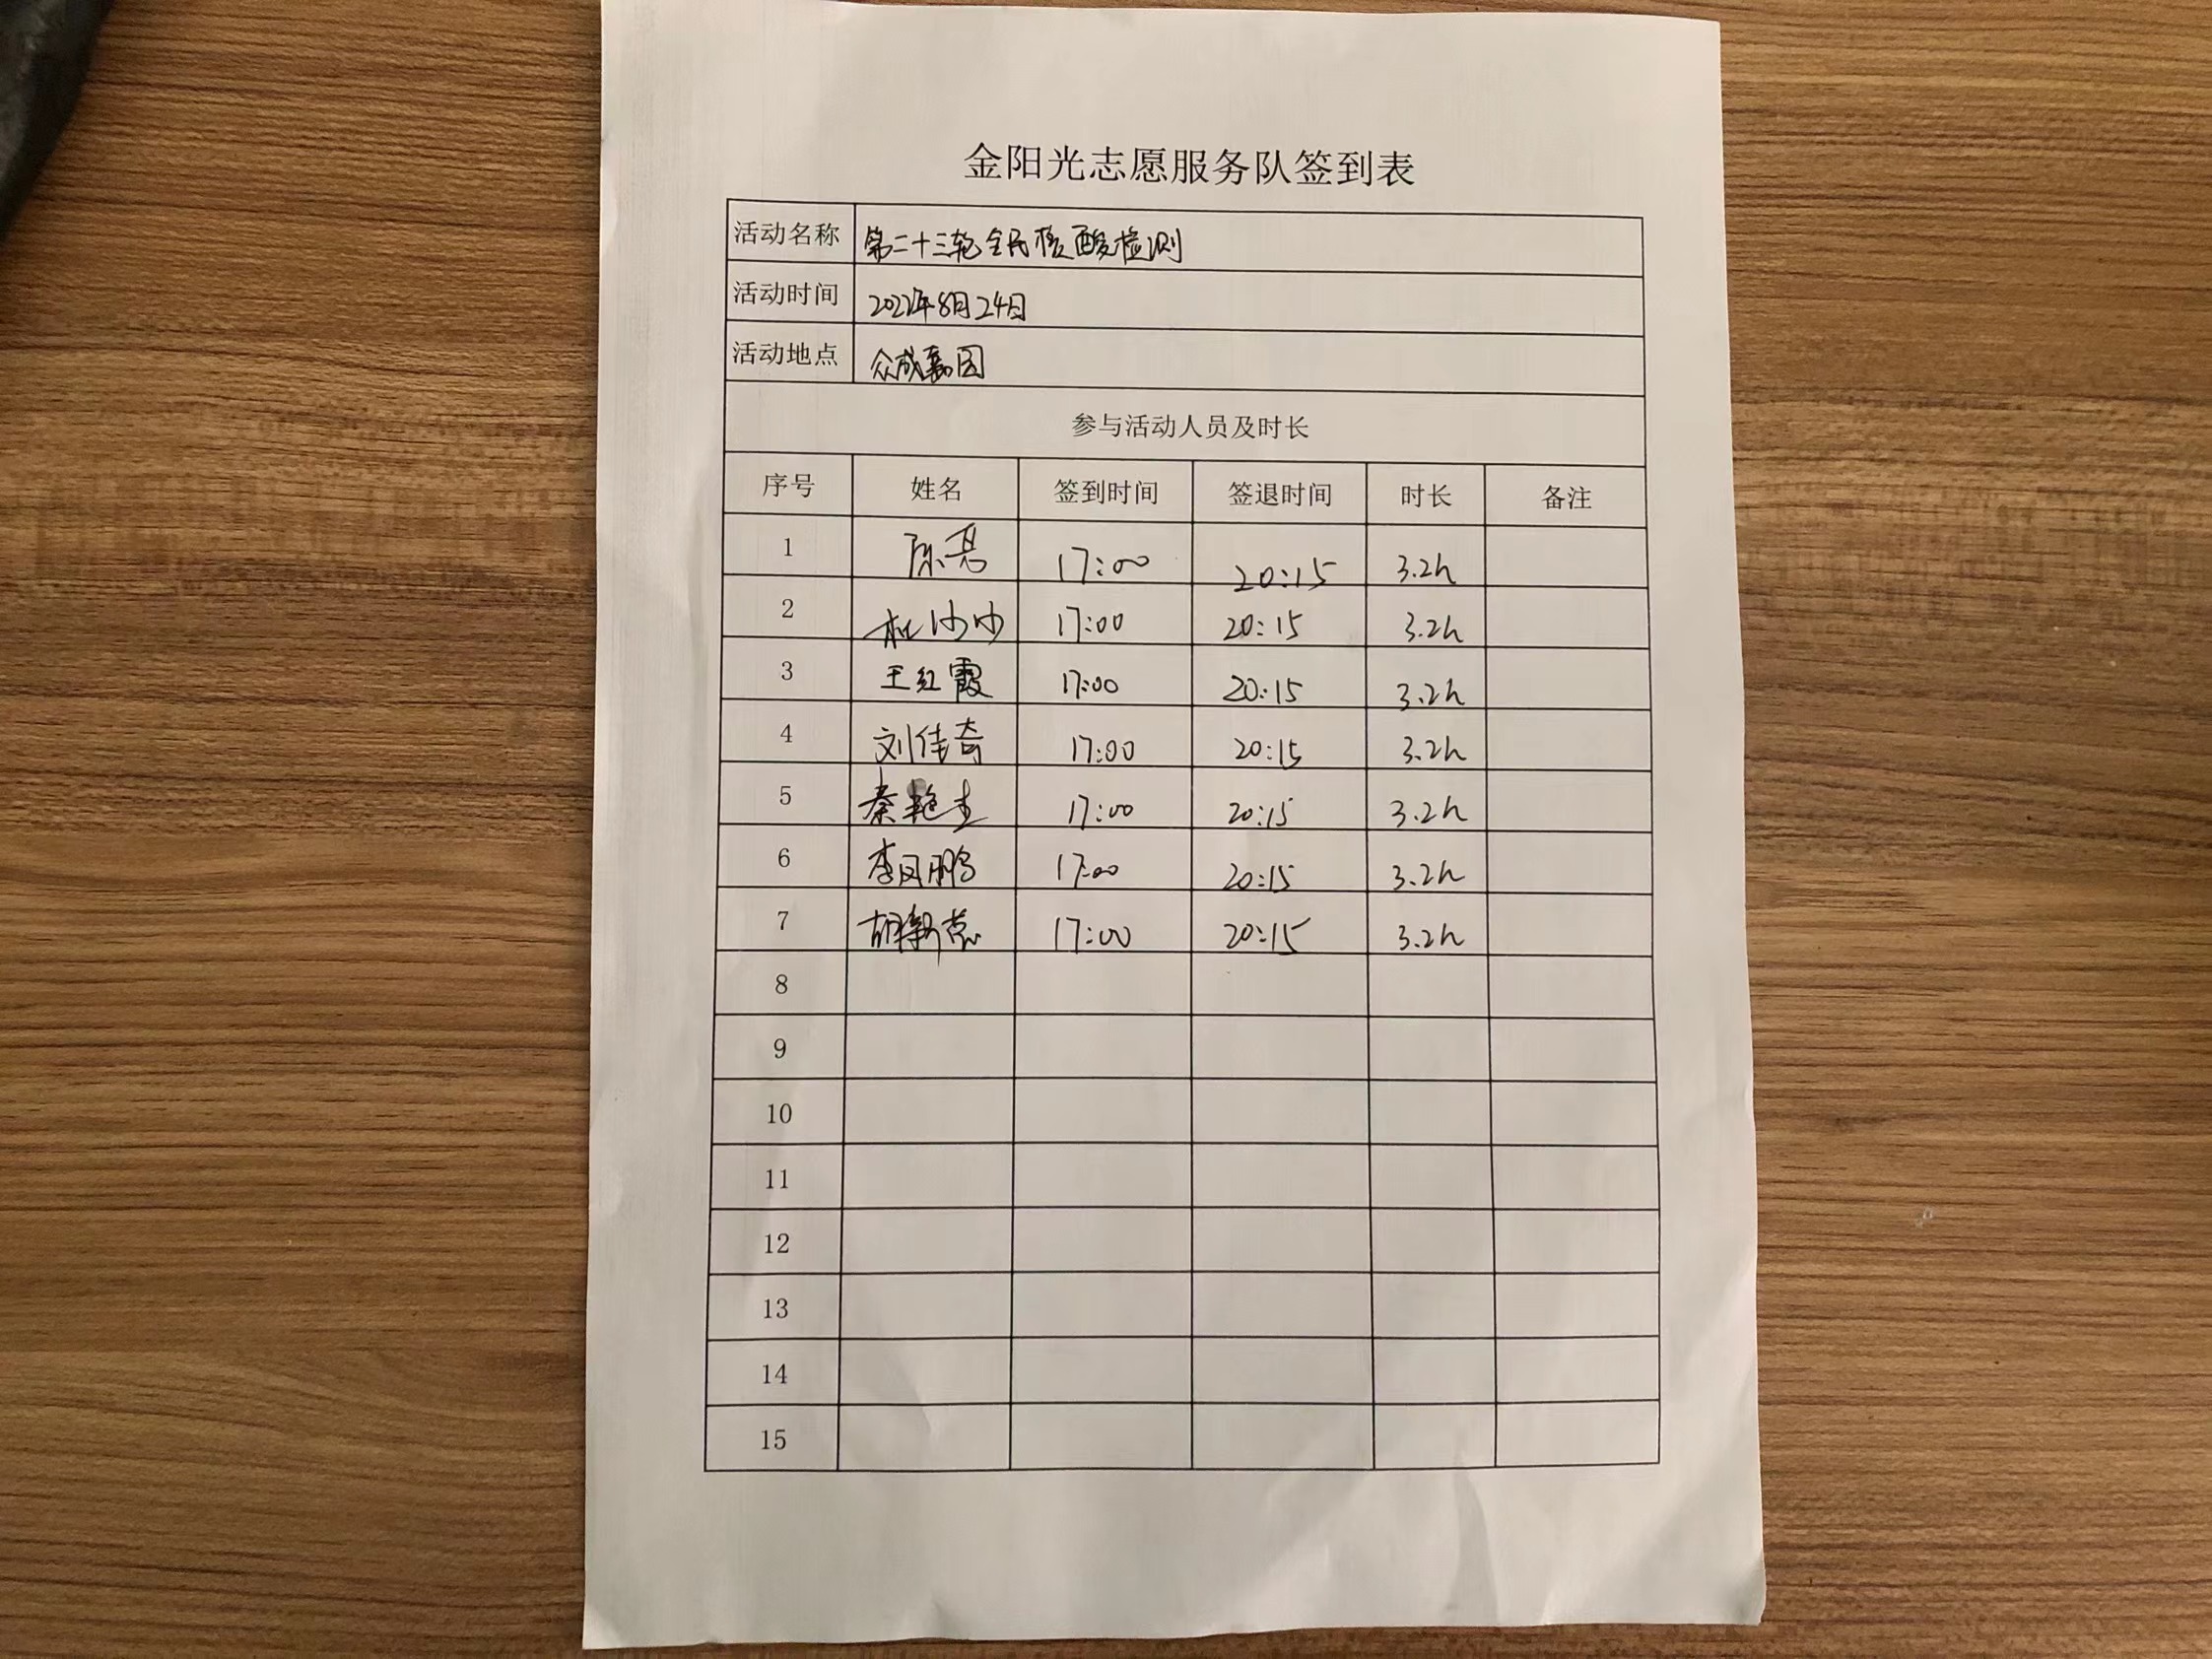 金阳光志愿服务队签到表
活动名称 第二十三轮全民核酸检测
活动时间 2022年8月24日
活动地点 众成嘉园
参与活动人员及时长
序号 姓名 签到时间 签退时间 时长 备注
1 陈亮 17:00 20:15 3.2h
2 杜沙沙 17:00 20:15 3.2h
3 王红霞 17:00 20:15 3.2h
4 刘佳奇 17:00 20:15 3.2h
5 秦艳 17:00 20:15 3.2h
6 李凤鹏 17:00 20:15 3.2h
7 胡新蕊 17:00 20:15 3.2h
8
9
10
11
12
13
14
15